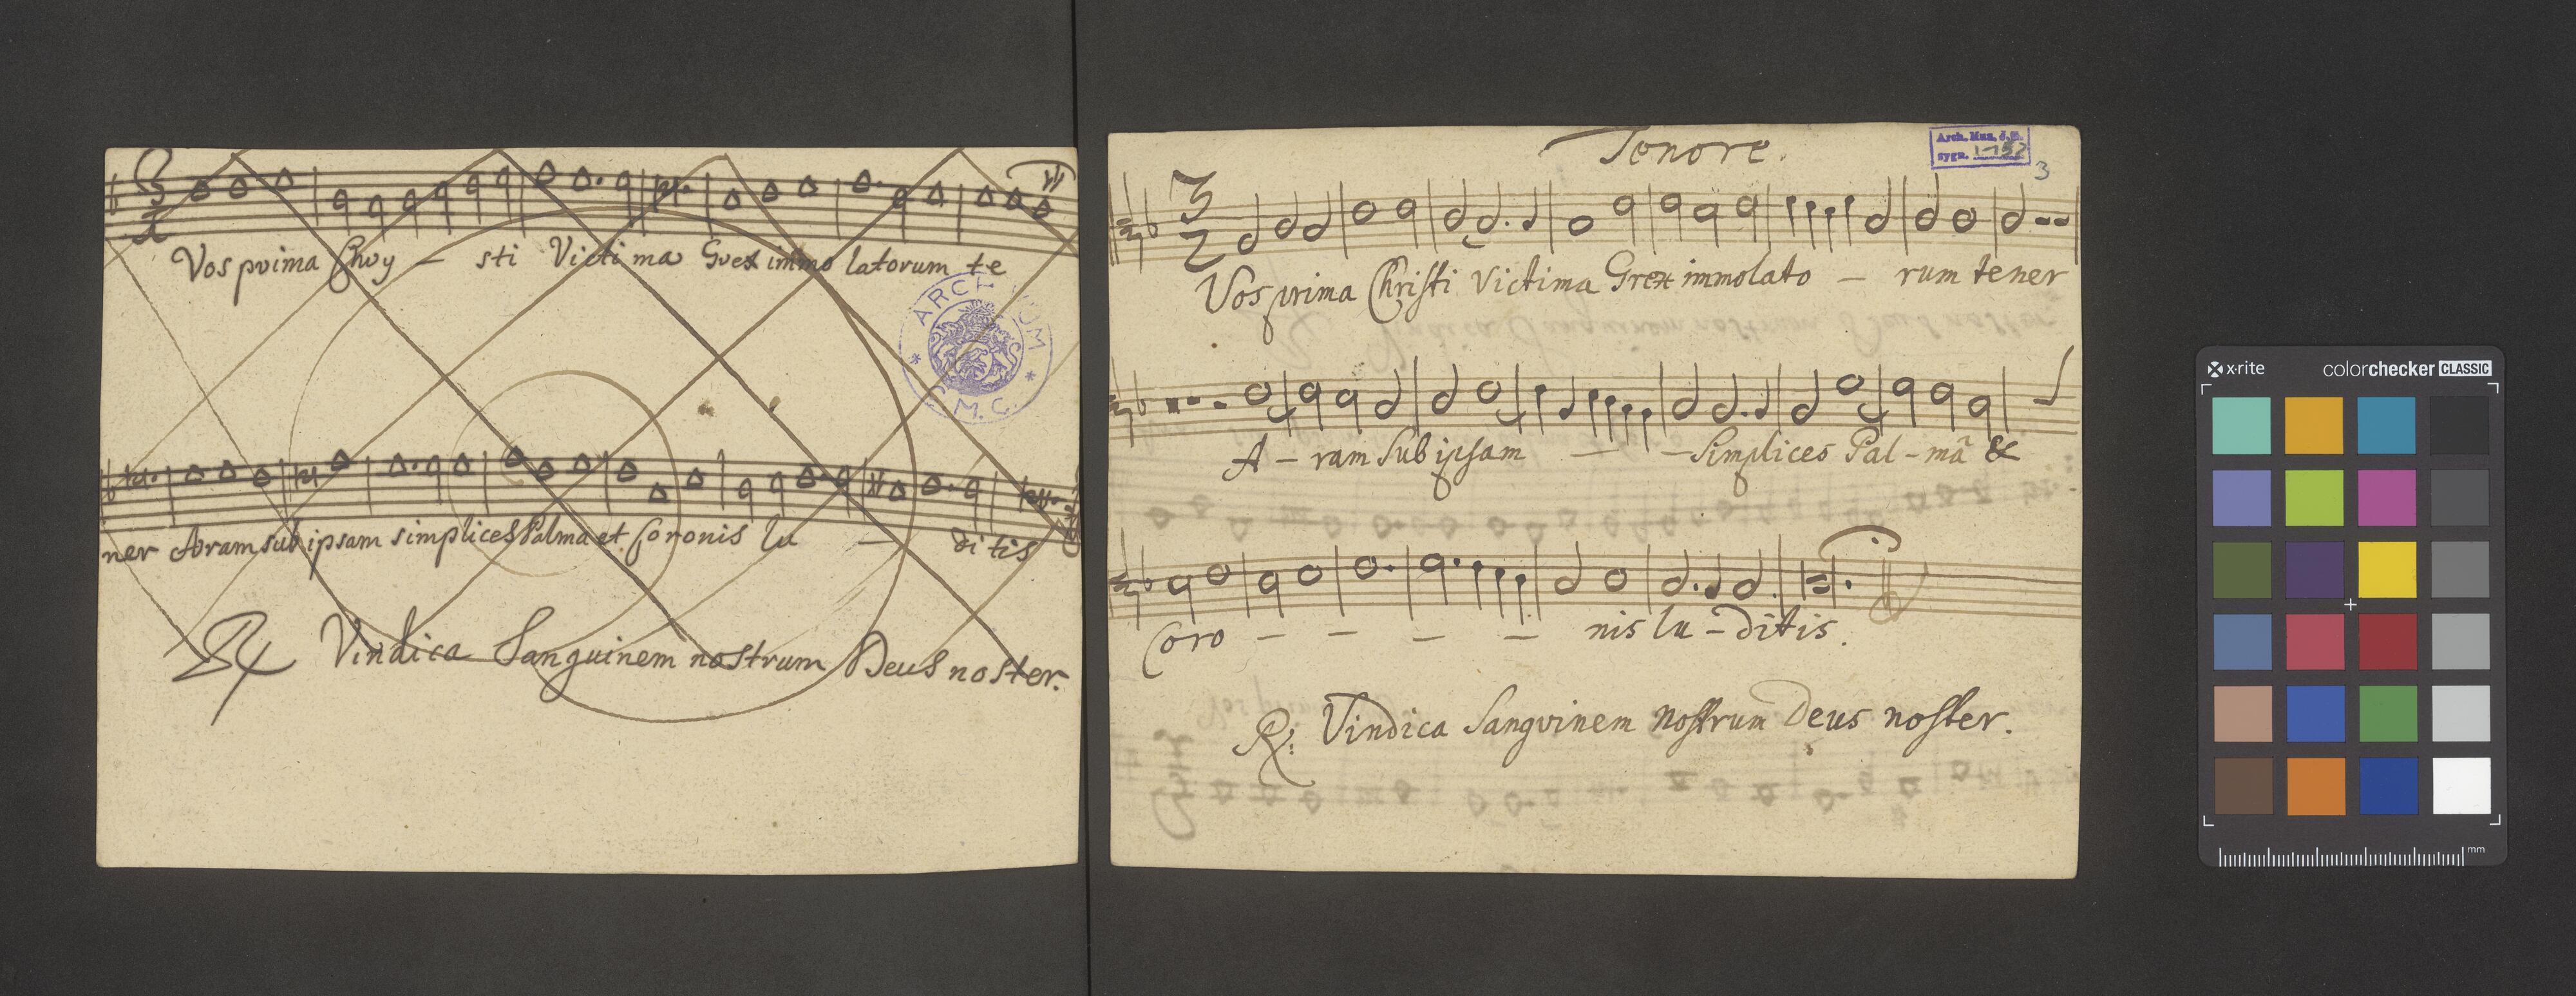 Vos prima Chry – sti Victima Grex immolatorum te
ARCHIVUM
D. M. C.
ner Aram sub ipsam simplices Palma et Coronis lu – ditis
℟ Vindica Sanguinem nostrum Deus noster.
Tenore.
Arch. Mun. d. M.
sygn. I-152
3
3
2
Vos prima Christi Victima Grex immolato – rum tener
A – ram sub ipsam – – simplices Pal – mã &
Coro – – – – nis lu – ditis.
℟: Vindica Sangvinem nostrum Deus noster.
x·rite
colorchecker CLASSIC
mm